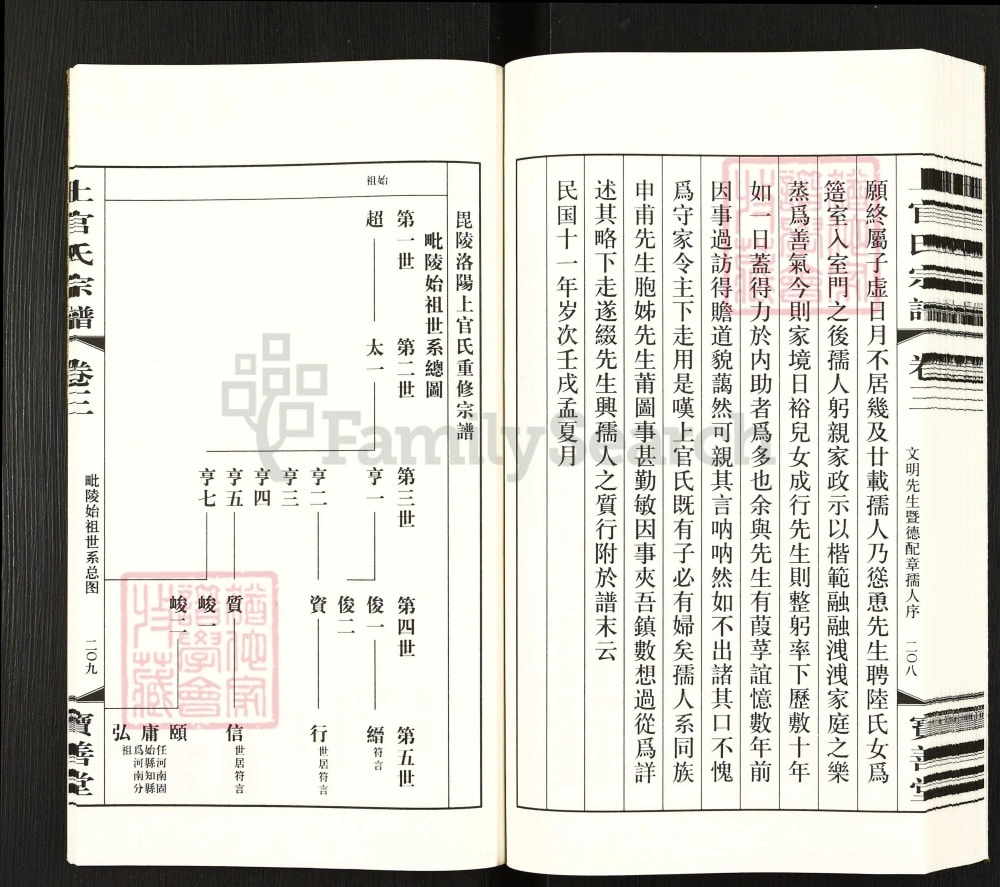 上官氏宗譜
卷三
文明先生暨德配章孺人序
二〇八
寶善堂
願終屬子虛日月不居幾及廿載孺人乃慫恿先生聘陸氏女爲
簉室入室門之後孺人躬親家政示以楷範融融洩洩家庭之樂
蒸爲善氣今則家境日裕兒女成行先生則整躬率下歷敷十年
如一日蓋得力於内助者爲多也余與先生有葭莩誼憶數年前
因事過訪得瞻道貌藹然可親其言呐呐然如不出諸其口不愧
爲守家令主下走用是嘆上官氏既有子必有婦矣孺人系同族
申甫先生胞姊先生莆圖事甚勤敏因事夾吾鎮數想過從爲詳
述其略下走遂綴先生興孺人之質行附於譜末云
民国十一年岁次壬戌孟夏月
毘陵洛陽上官氏重修宗譜
毗陵始祖世系總圖
第一世 第二世 第三世 第四世 第五世
始祖
超 太一 亨一 俊一 縉 符言
俊二
亨二 資 行 世居符言
亨三
亨四
亨五 質 信 世居符言
亨七 峻一
峻二 頤
庸 任河南固始縣知縣爲河南分祖
弘
上官氏宗譜
卷三
毗陵始祖世系总图
二〇九
寶善堂
FamilySearch